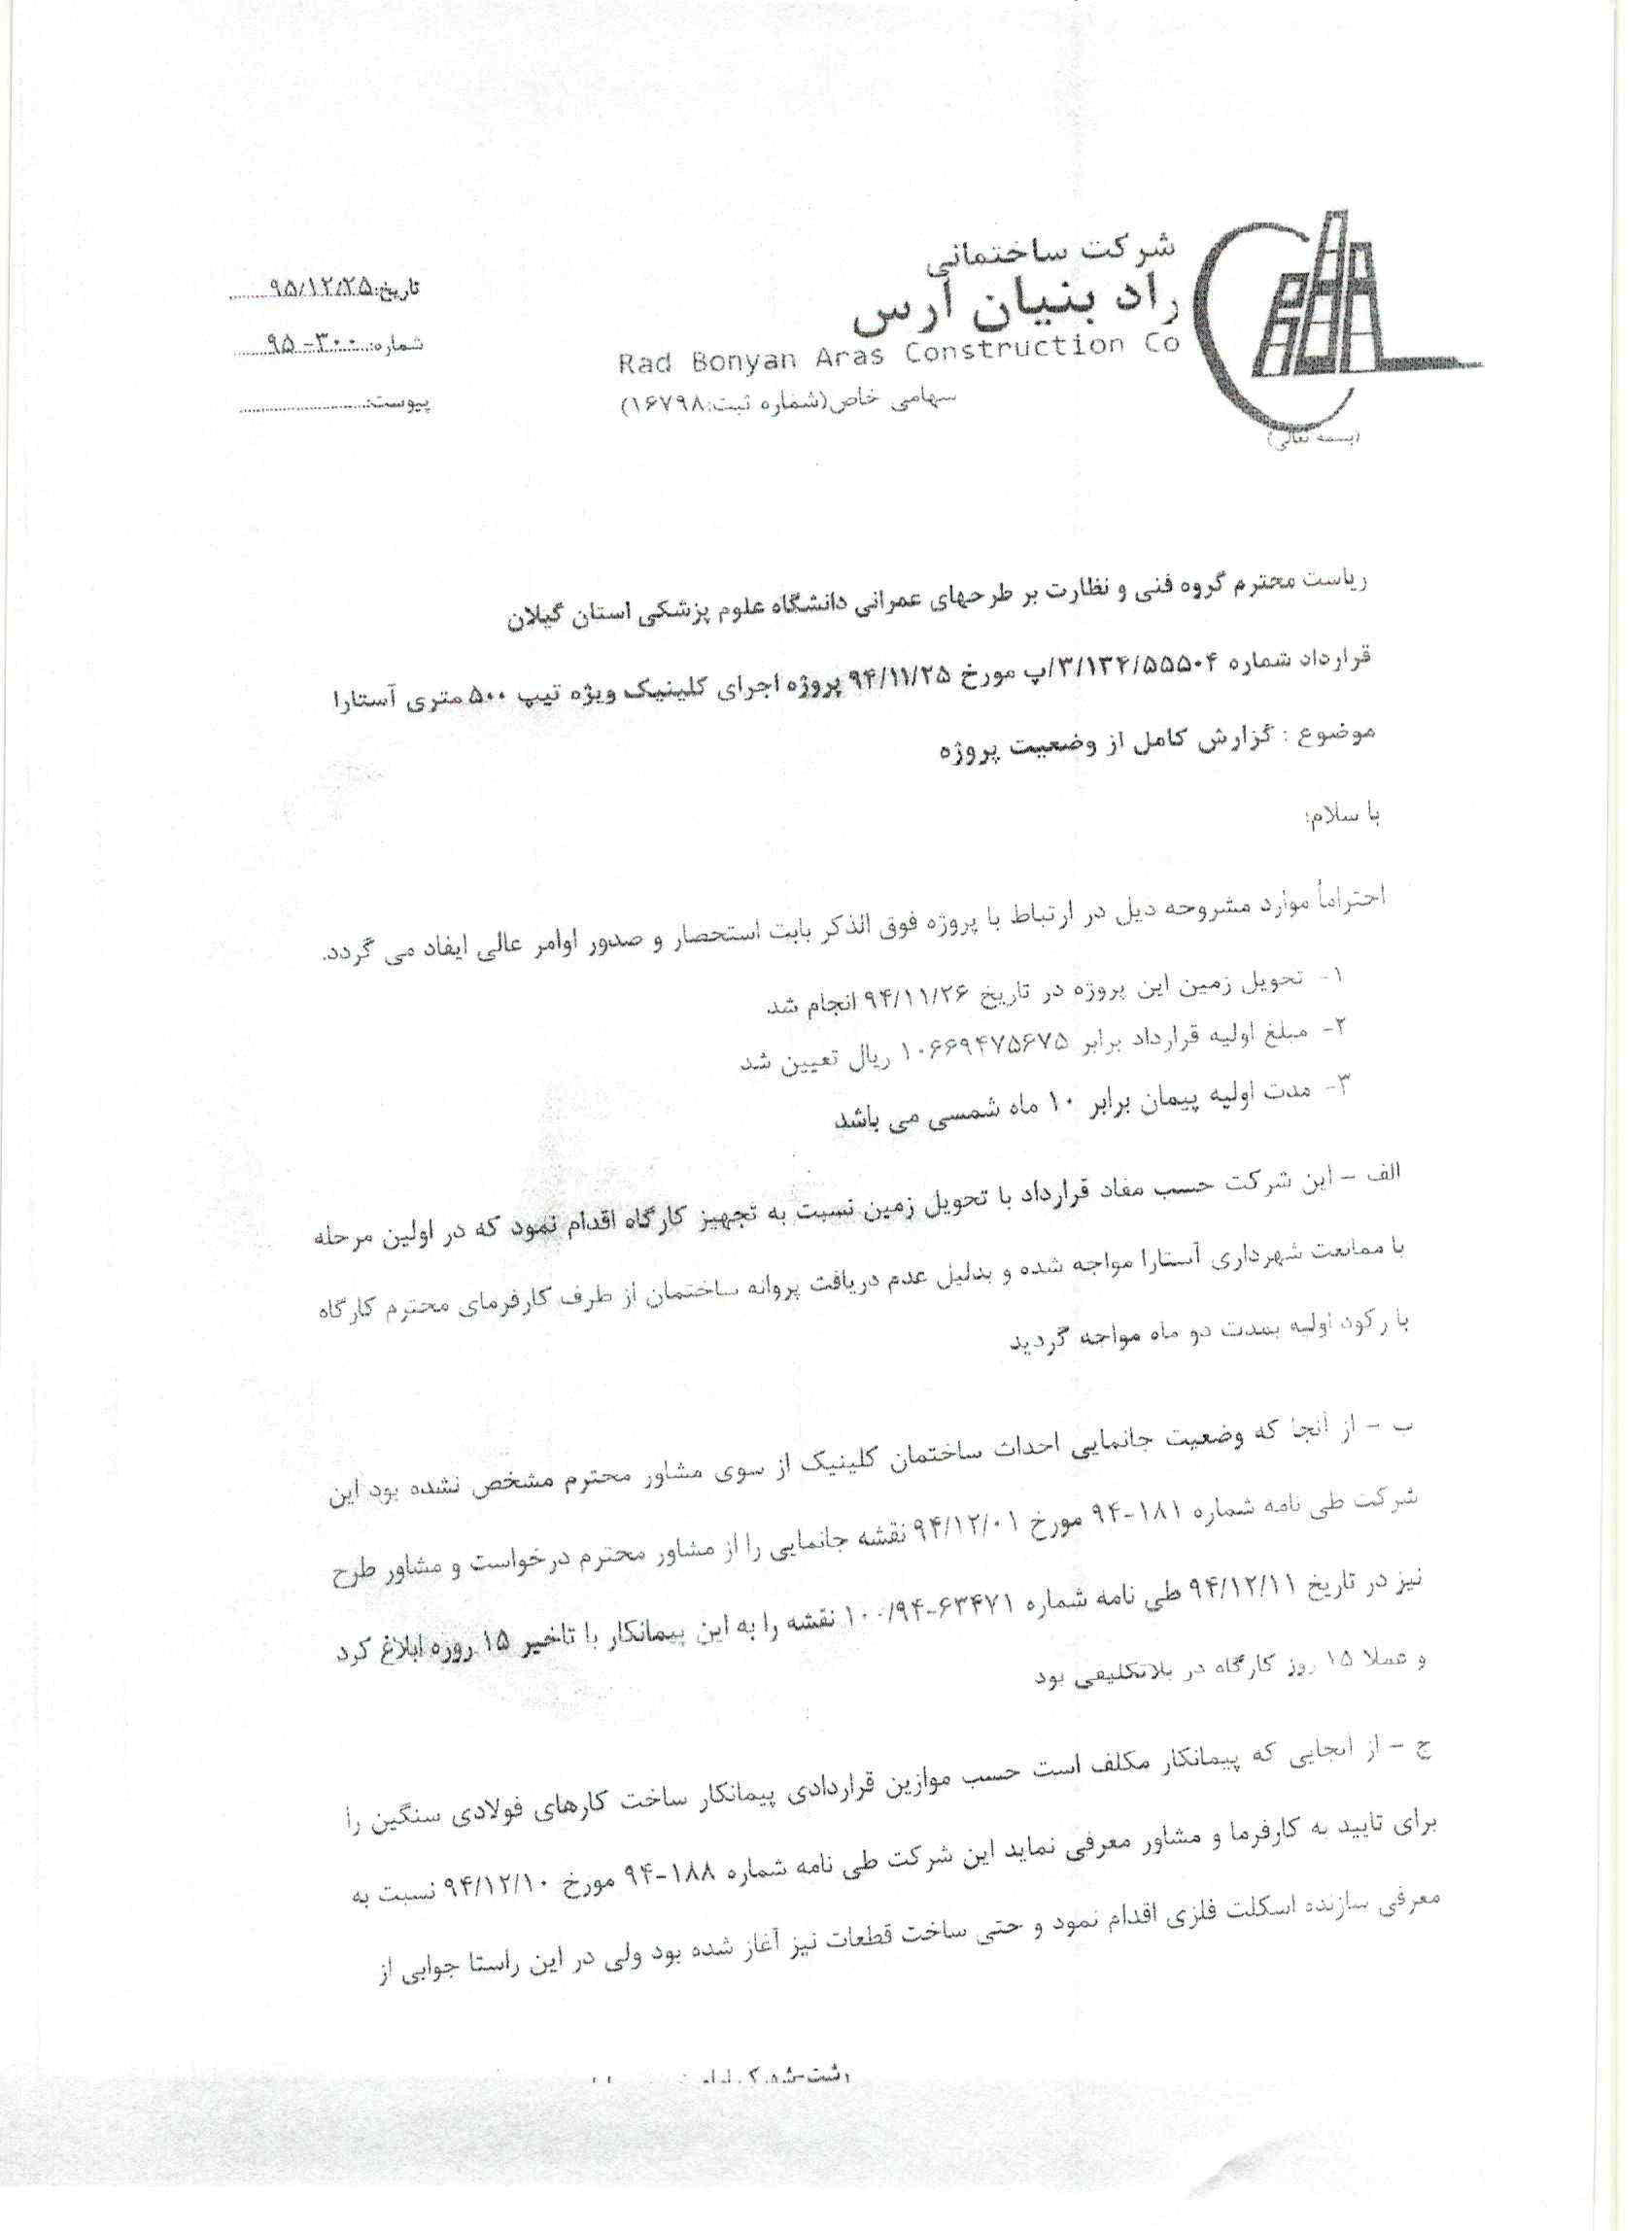 شرکت ساختمانی
راد بنیان ارس
Rad Bonyan Aras Construction Co
سهامی خاص(شماره ثبت:۱۶۷۹۸)
تاریخ:۹۵/۱۲/۲۵
شماره:۳۰۰-۹۵
پیوست:
(بسمه تعالی)
ریاست محترم گروه فنی و نظارت بر طرحهای عمرانی دانشگاه علوم پزشکی استان گیلان
قرارداد شماره ۳/۱۳۴/۵۵۵۰۴/پ مورخ ۹۴/۱۱/۲۵ پروژه اجرای کلینیک ویژه تیپ ۵۰۰ متری آستارا
موضوع : گزارش کامل از وضعیت پروژه
با سلام:
احتراماً موارد مشروحه ذیل در ارتباط با پروژه فوق الذکر بابت استحصار و صدور اوامر عالی ایفاد می گردد.
۱- تحویل زمین این پروژه در تاریخ ۹۴/۱۱/۲۶ انجام شد
۲- مبلغ اولیه قرارداد برابر ۱۰۶۶۹۴۷۵۶۷۵ ریال تعیین شد
۳- مدت اولیه پیمان برابر ۱۰ ماه شمسی می باشد
الف – این شرکت حسب مفاد قرارداد با تحویل زمین نسبت به تجهیز کارگاه اقدام نمود که در اولین مرحله
با ممانعت شهرداری آستارا مواجه شده و بدلیل عدم دریافت پروانه ساختمان از طرف کارفرمای محترم کارگاه
با رکود اولیه بمدت دو ماه مواجه گردید
ب – از آنجا که وضعیت جانمایی احداث ساختمان کلینیک از سوی مشاور محترم مشخص نشده بود این
شرکت طی نامه شماره ۱۸۱-۹۴ مورخ ۹۴/۱۲/۰۱ نقشه جانمایی را از مشاور محترم درخواست و مشاور طرح
نیز در تاریخ ۹۴/۱۲/۱۱ طی نامه شماره ۶۳۴۷۱-۱۰۰/۹۴ نقشه را به این پیمانکار با تاخیر ۱۵ روزه ابلاغ کرد
و عملا ۱۵ روز کارگاه در بلاتکلیفی بود
ج – از انجایی که پیمانکار مکلف است حسب موازین قراردادی پیمانکار ساخت کارهای فولادی سنگین را
برای تایید به کارفرما و مشاور معرفی نماید این شرکت طی نامه شماره ۱۸۸-۹۴ مورخ ۹۴/۱۲/۱۰ نسبت به
معرفی سازنده اسکلت فلزی اقدام نمود و حتی ساخت قطعات نیز آغاز شده بود ولی در این راستا جوابی از
رشت-شهرک